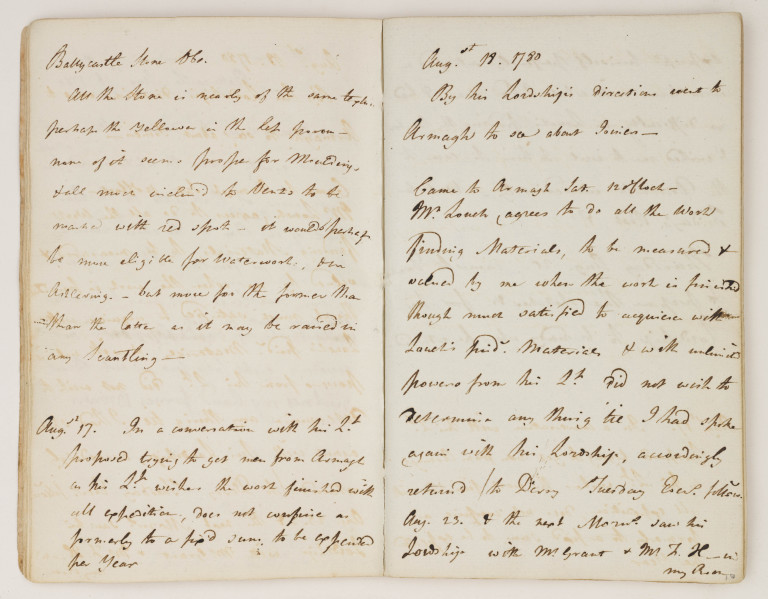 Ballycastle Stone &c.
All the Stone is nearly of the same
perhaps the Yellower is the best
none of it seems proper for Moulding,
& all more inclined to to be
marked with red spots - it would perhaps
be more eligible for Waterwork, & in
Ashlering. - but more for the former than
than the latter as it may be raised in
any Scantling —
Aug.st 17. In a conversation with his Lp
proposed trying to get men from Armagh
as his Lp wishes the work finished with
all expedition, does not confine as
formerly to a fix'd sum, to be expended
per Year
Aug.st 19. 1780
By his Lordship's directions went to
Armagh to see about Joiners —
Came to Armagh Sat. 12 o'Clock -
Mr. Louch agrees to do all the Work
finding Materials, to be measured &
valued by me when the work is finished
though much satisfied to acquiesce with
Louch's Materials & with unlimited
powers from his Lp. did not wish to
determine any thing 'till I had spoke
again with his Lordship, accordingly
returned to Derry Tuesday Even.
Aug. 23. & the next Morn.g saw his
Lordship with Mr Grant & Mr. H — in
my Room